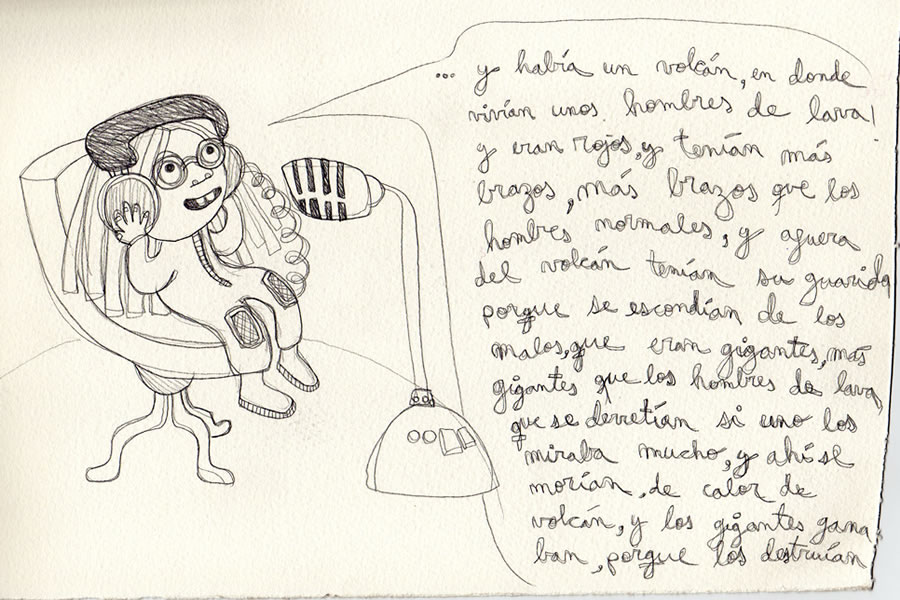 ... y había un volcán, en donde
vivían unos hombres de lava!
y eran rojos, y tenían más
brazos, más brazos que los
hombres normales, y afuera
del volcán tenían su guarida
porque se escondían de los
malos, que eran gigantes, más
gigantes que los hombres de lava,
que se derretían si uno los
miraba mucho, y ahí se
morían, de calor de
volcán, y los gigantes gana
ban, porque los destruían